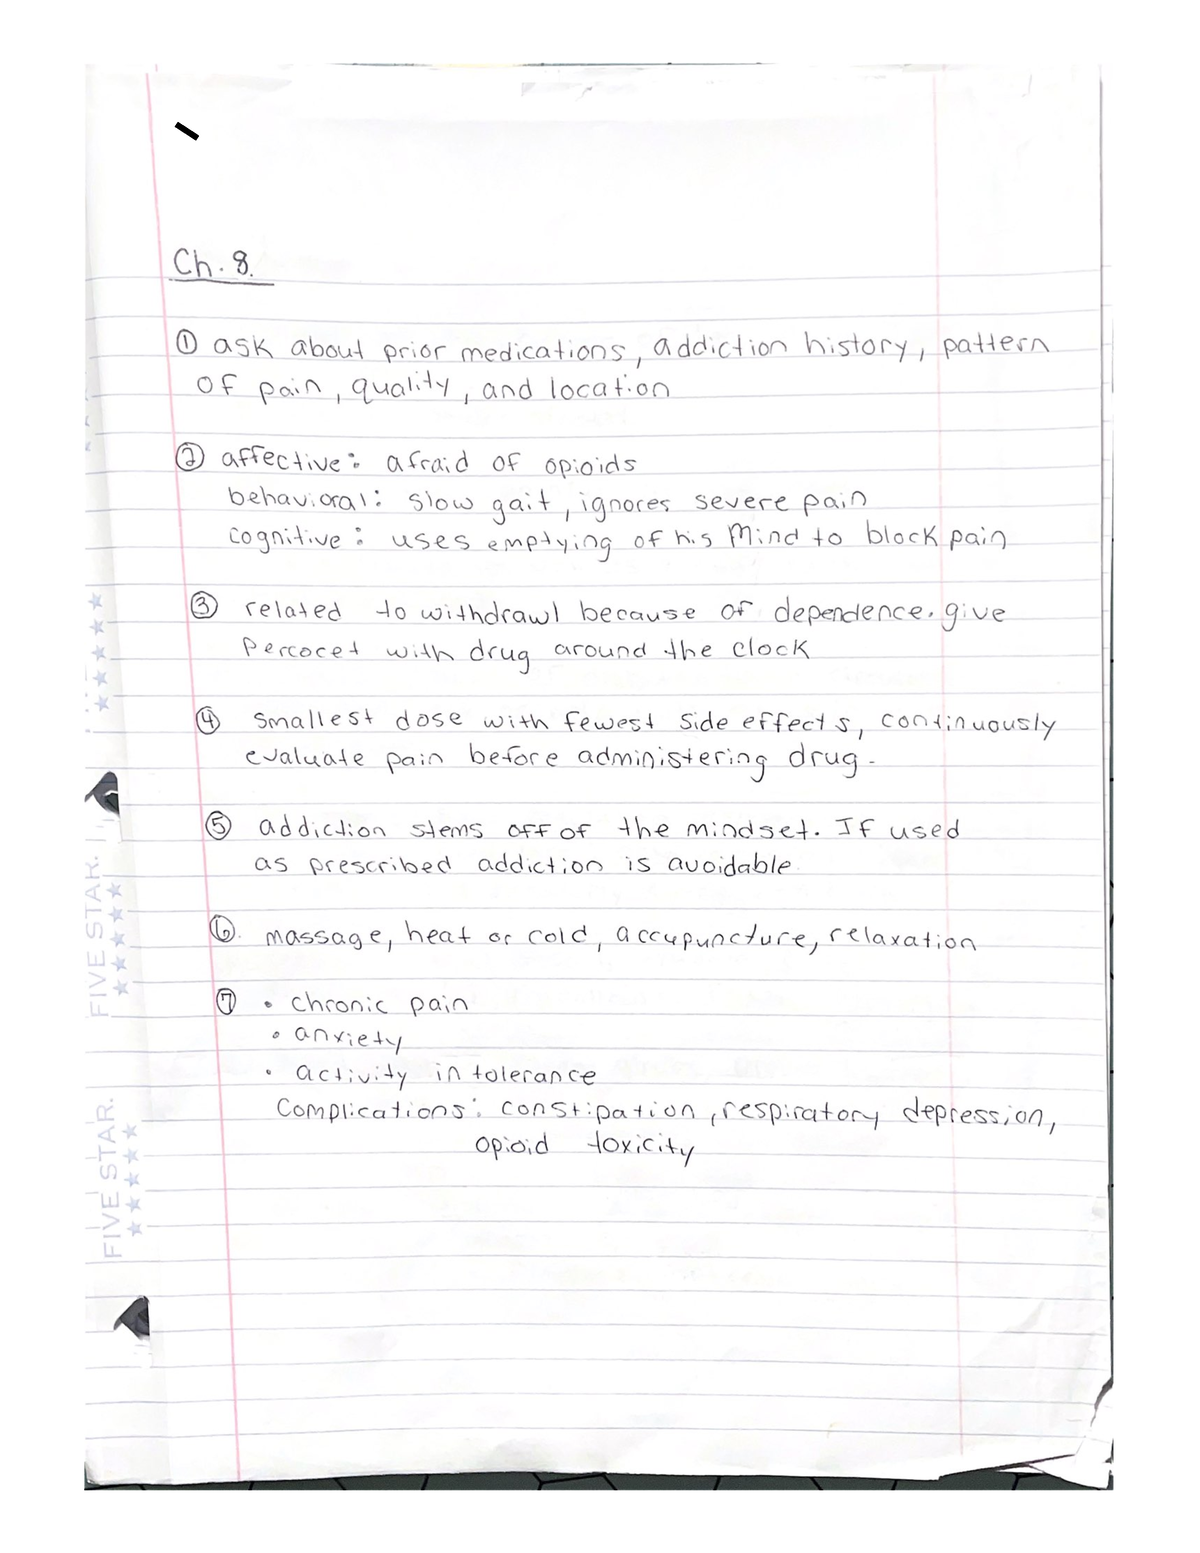 Ch. 8.
① ask about prior medications, addiction history, pattern
of pain, quality, and location
② affective: afraid of opioids
behavioral: slow gait, ignores severe pain
cognitive: uses emptying of his mind to block pain
③ related to withdrawl because of dependence. give
Percocet with drug around the clock
④ smallest dose with fewest side effects, continuously
evaluate pain before administering drug.
⑤ addiction stems off of the mindset. If used
as prescribed addiction is avoidable.
⑥. massage, heat or cold, accupuncture, relaxation
⑦ • chronic pain
• anxiety
• activity intolerance
Complications: constipation, respiratory depression,
opioid toxicity
FIVE STAR.
FIVE STAR.